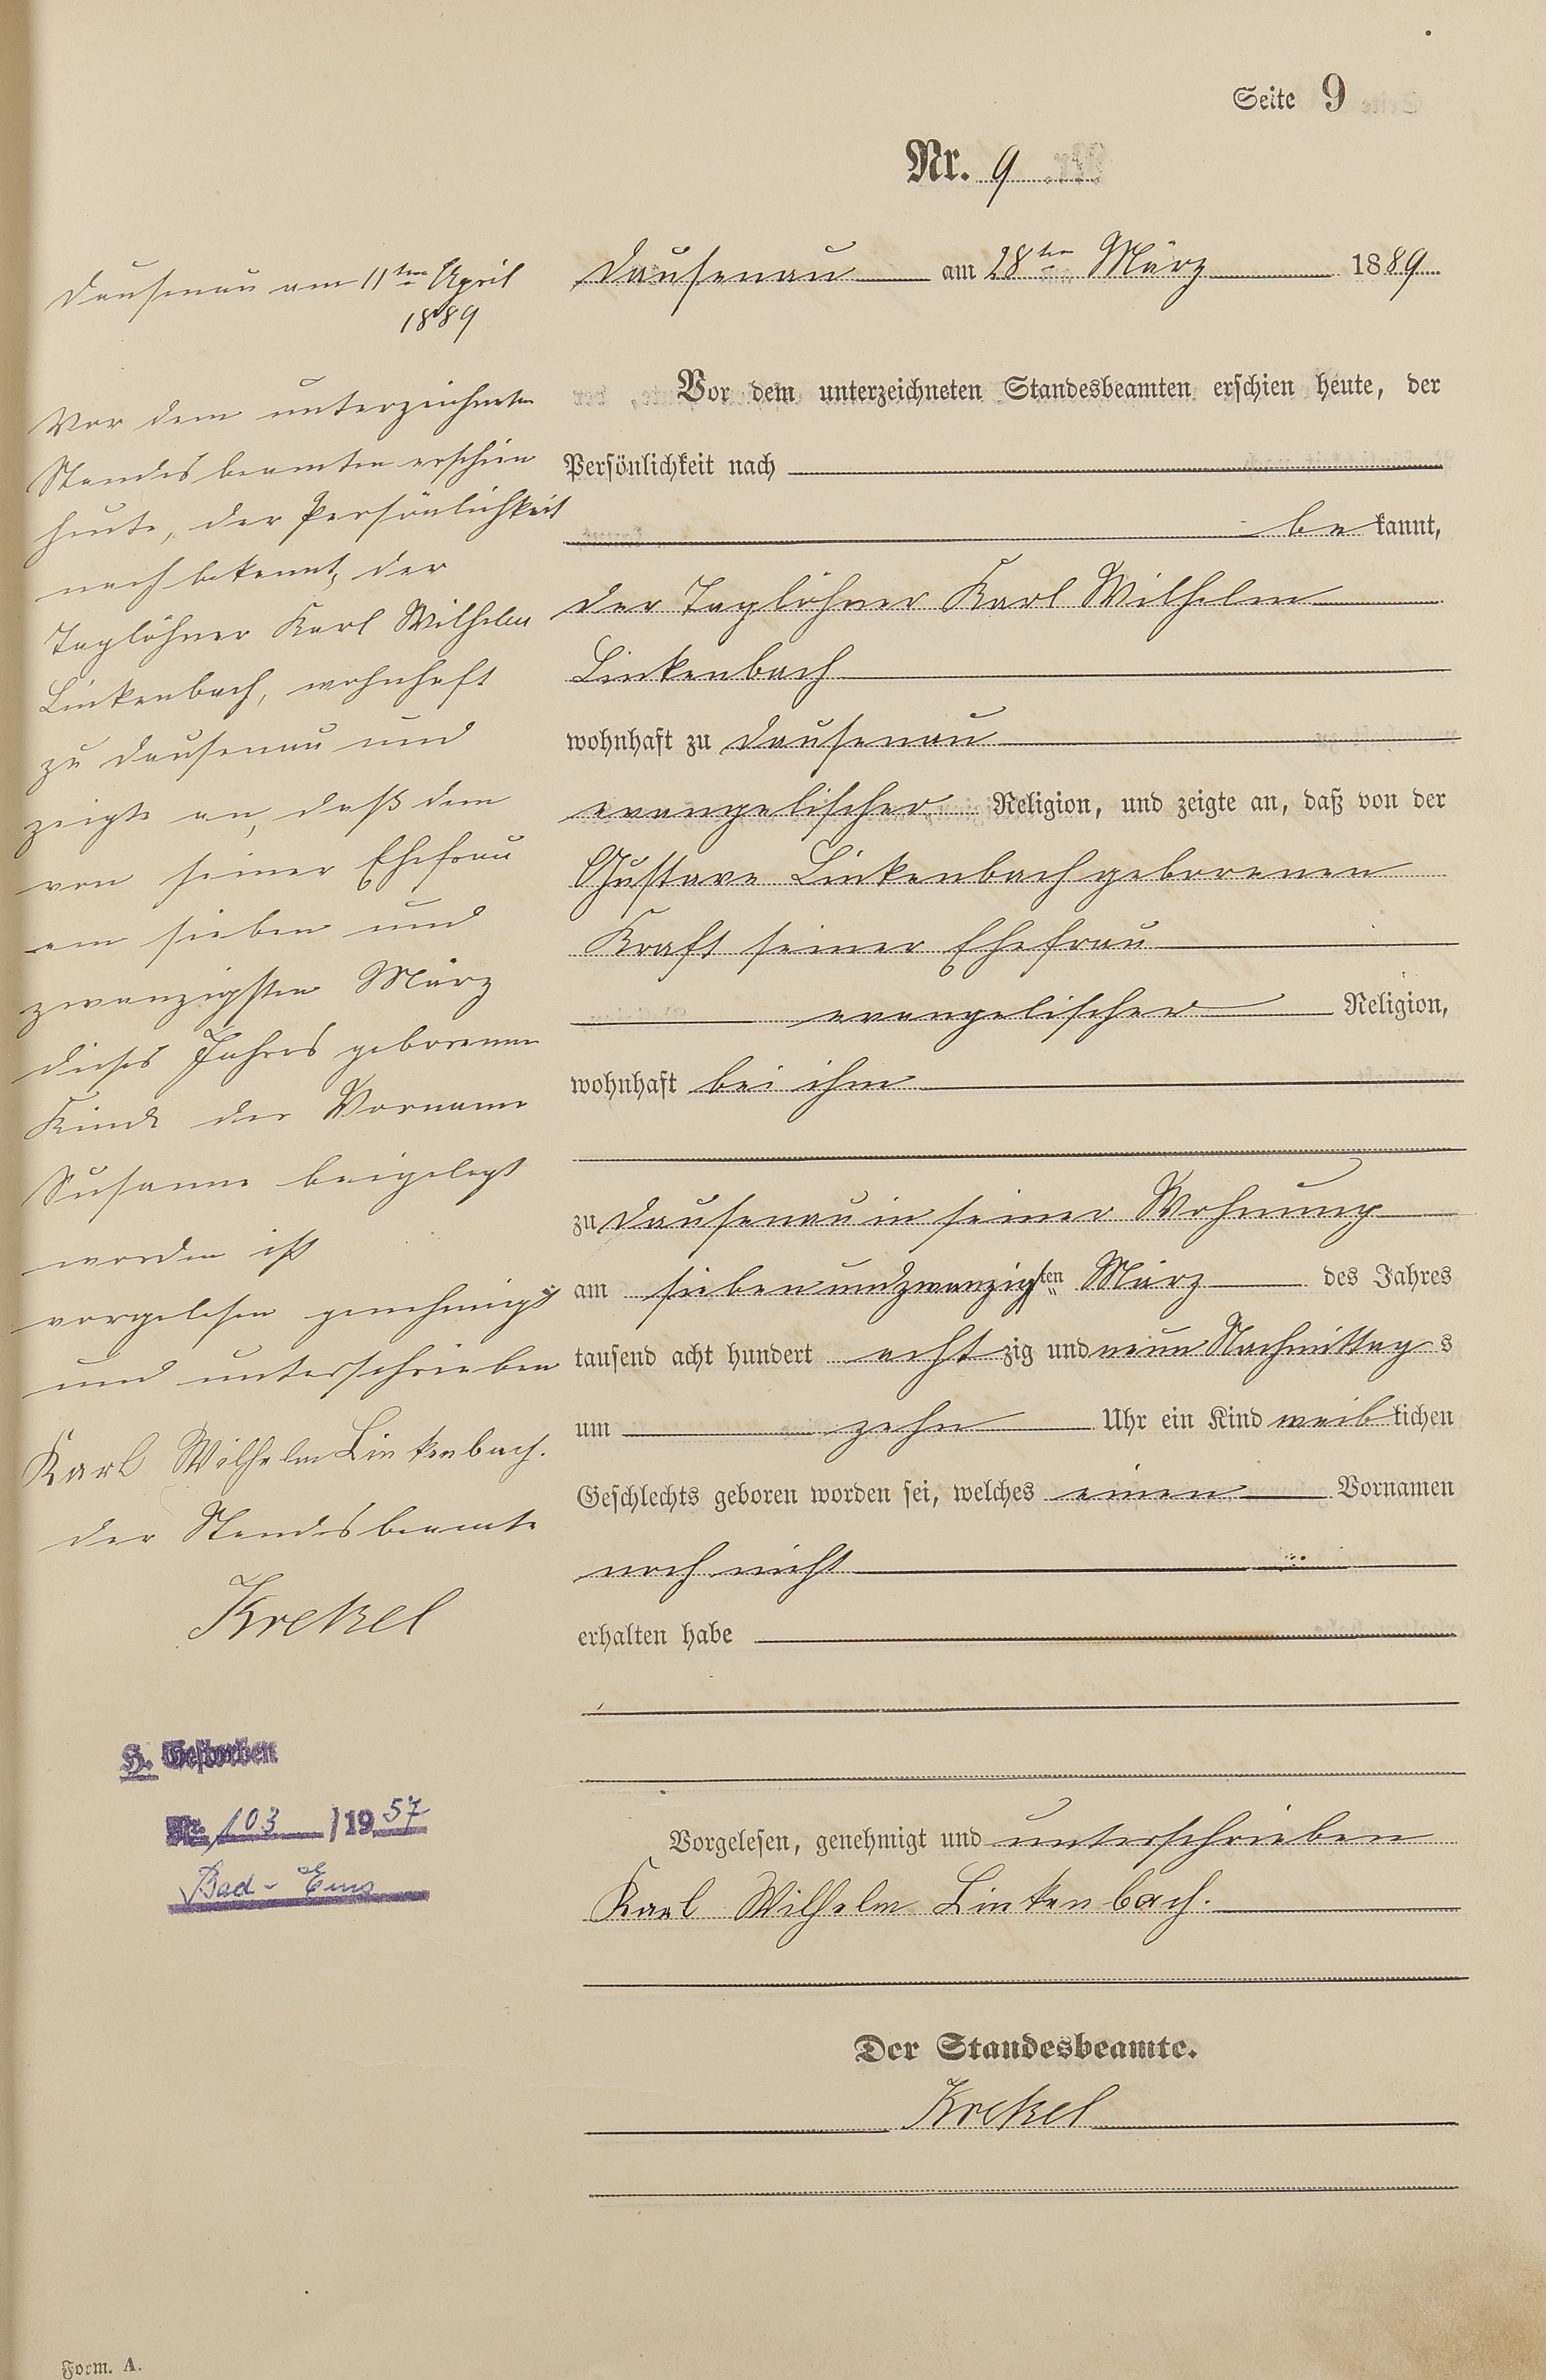 Seite 9
Nr. 9
Dausenau am 28ten März 1889
Vor dem unterzeichneten Standesbeamten erschien heute, der
Persönlichkeit nach
bekannt,
der Taglöhner Karl Wilhelm
Linkenbach
wohnhaft zu Dausenau
evangelischer Religion, und zeigte an, daß von der
Gustave Linkenbach geborenen
Kraft seiner Ehefrau
evangelischer Religion,
wohnhaft bei ihm
zu Dausenau in seiner Wohnung
am siebenundzwanzigsten März des Jahres
tausend acht hundert achtzig und neun Nachmittags
um zehn Uhr ein Kind weiblichen
Geschlechts geboren worden sei, welches einen Vornamen
noch nicht
erhalten habe
Vorgelesen, genehmigt und unterschrieben
Karl Wilhelm Linkenbach.
Der Standesbeamte.
Krekel
Dausenau am 11ten April
1889
Vor dem unterzeichneten
Standesbeamten erschien
heute, der Persönlichkeit
nach bekannt, der
Taglöhner Karl Wilhelm
Linkenbach, wohnhaft
zu Dausenau und
zeigte an, daß dem
von seiner Ehefrau
am sieben und
zwanzigsten März
dieses Jahres geborenen
Kinde der Vorname
Susanne beigelegt
worden ist
vorgelesen genehmigt
und unterschrieben
Karl Wilhelm Linkenbach.
der Standesbeamte
Krekel
H. Gestorben
Nr. 103/1957
Bad-Ems
Form. A.